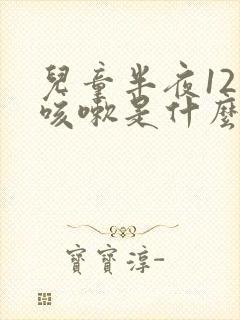 兒童半夜12
咳嗽是什麼
寶寶淳-